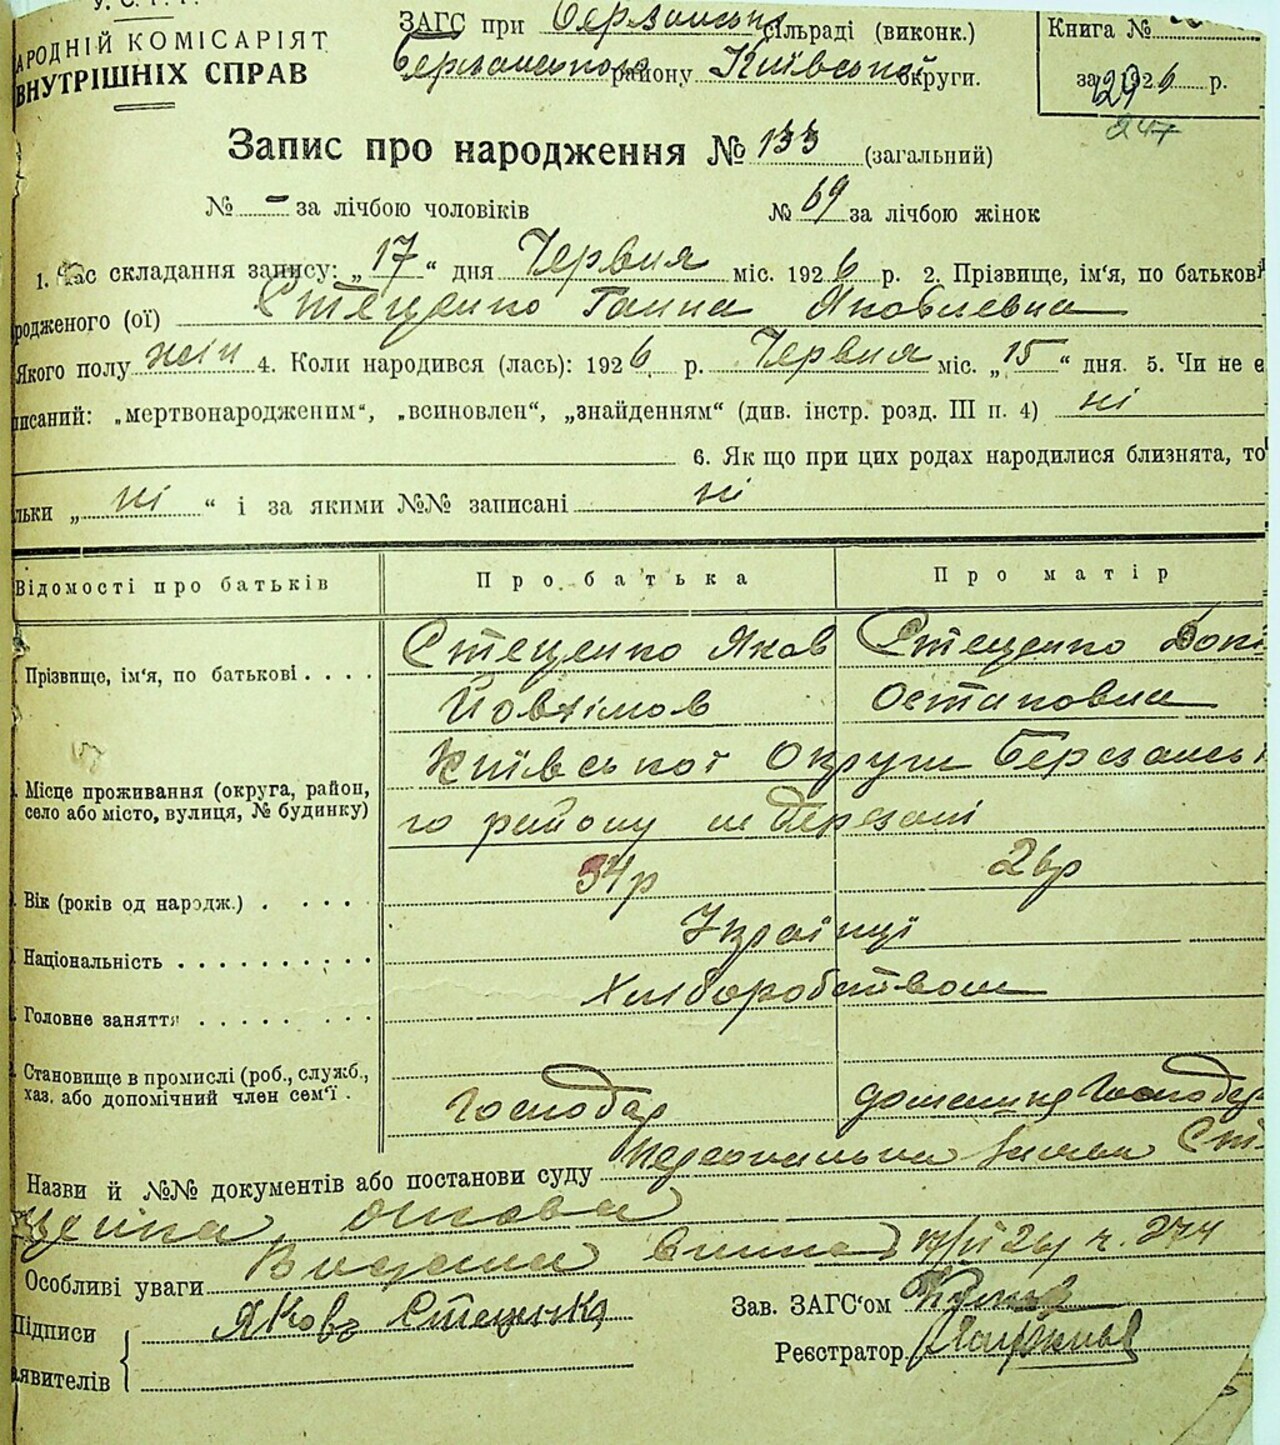 У. С. Р. Р.
АРОДНІЙ КОМІСАРІЯТ
ВНУТРІШНІХ СПРАВ
ЗАГС при Березанськ сільраді (виконк.)
Березанського району Київської округи.
Книга №
за 1926 р.
247
Запис про народження № 133 (загальний)
№ - за лічбою чоловіків № 69 за лічбою жінок
1. Час складання запису: „17“ дня Червня міс. 1926 р. 2. Прізвище, ім'я, по батькові
родженого (ої) Стеценко Ганна Яковлевна
Якого полу жін 4. Коли народився (лась): 1926 р. Червня міс. „15“ дня. 5. Чи не є
писаний: „мертвонародженим“, „всиновлен“, „знайденням“ (див. інстр. розд. III п. 4) ні
6. Як що при цих родах народилися близнята, то
льки „ ні “ і за якими №№ записані ні
Відомості про батьків Про батька Про матір
Прізвище, ім'я, по батькові . . . . Стеценко Яков Стеценко
Йовхімов Остаповна
Місце проживання (округа, район, село або місто, вулиця, № будинку) Київської Округи Березансь
го району м Березані
Вік (років од народж.) . . . . 34р 26р
Національність . . . . . . . . . . Українці
Головне заняття . . . . . . . . Хліборобством
Становище в промислі (роб., служб., хаз. або допомічний член сем'ї . Господар домашня Господар
Назви й №№ документів або постанови суду персональна Сте
ценка
Особливі уваги Видана ч. 274
Підписи
аявителів
Яков Стеценко
Зав. ЗАГС'ом
Реєстратор